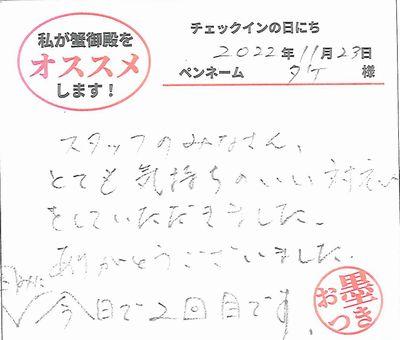 私が蟹御殿を
オススメ
します!
チェックインの日にち
2022年11月23日
ペンネーム タケ 様
スタッフのみなさん、
とても気持ちのいい対応
をしていただきました。
ありがとうございました。
今日で2回目です
墨
おつき